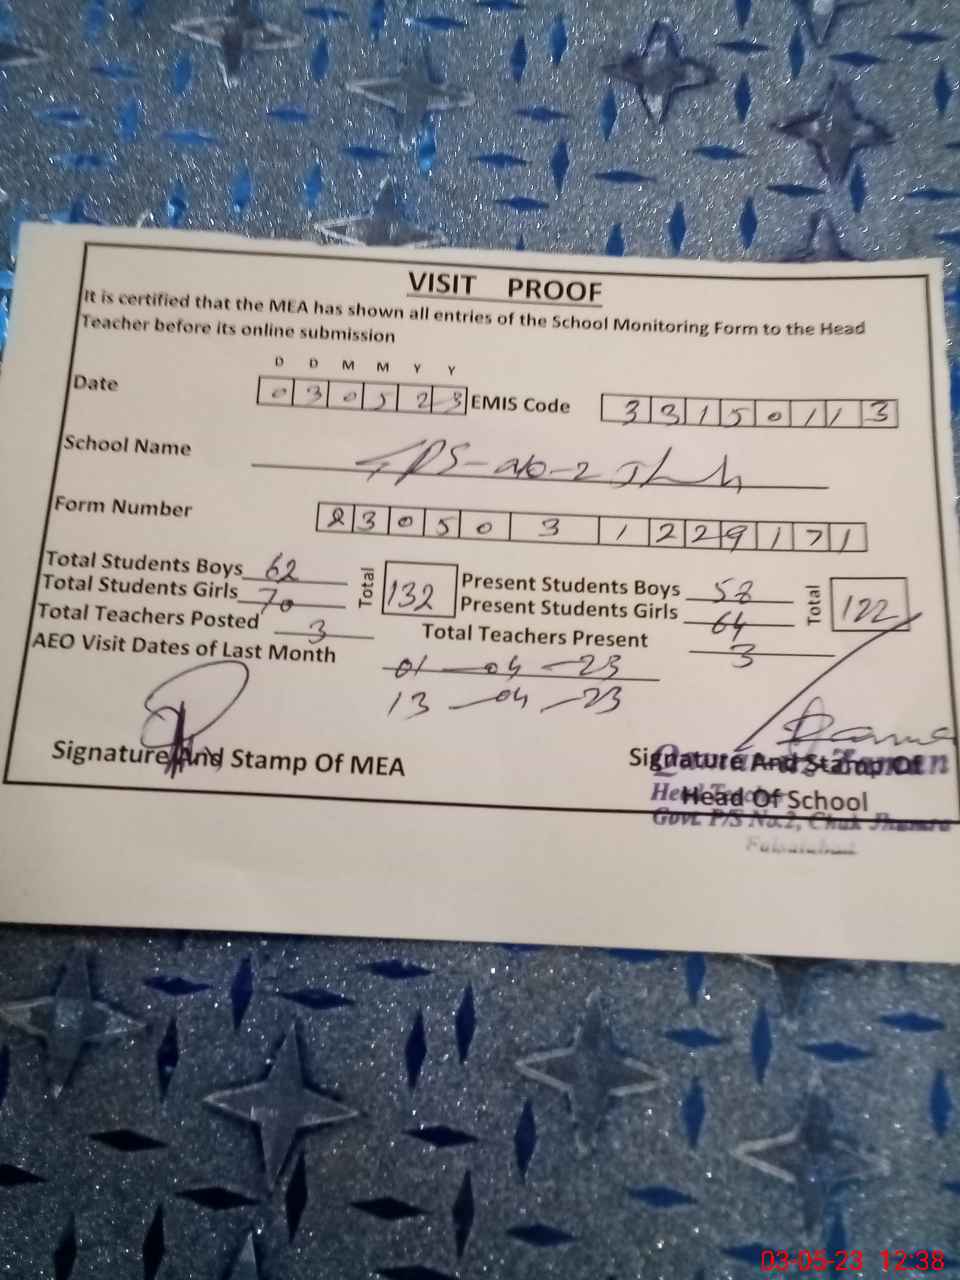 VISIT PROOF
It is certified that the MEA has shown all entries of the School Monitoring Form to the Head
Teacher before its online submission
D D M M Y Y
Date 0 3 0 5 2 3 EMIS Code 3 3 1 5 0 1 1 3
School Name GPS-No-2
Form Number 2 3 0 5 0 3 1 2 2 9 1 7 1
Total Students Boys 62 Total 132 Present Students Boys 58 Total 122
Total Students Girls 70 Present Students Girls 64
Total Teachers Posted 3 Total Teachers Present 3
AEO Visit Dates of Last Month 01-04-23
13-04-23
Signature And Stamp Of MEA Signature And Stamp Of
Head Of School
Head Teacher
Govt. P/S No.2, Chak Jhumra
Faisalabad
03-05-23 12:38